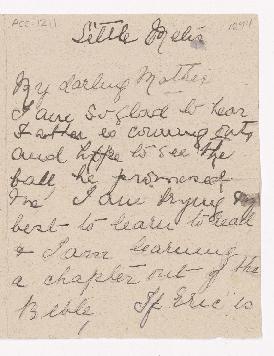 ACC-1211
Little Melis
My darling Mother
I am so glad to hear
Father is coming out
and hope to see the
ball he promised
me I am trying my
best to learn to read
& I am learning
a chapter out of the
Bible, If Eric is